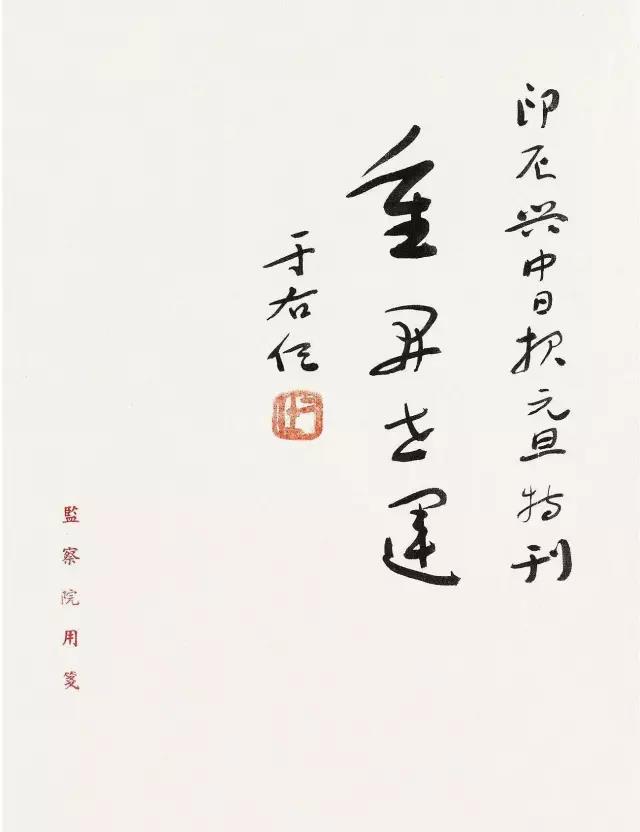 印尼興中日報元旦特刊
重開世運
于右任
監察院用箋